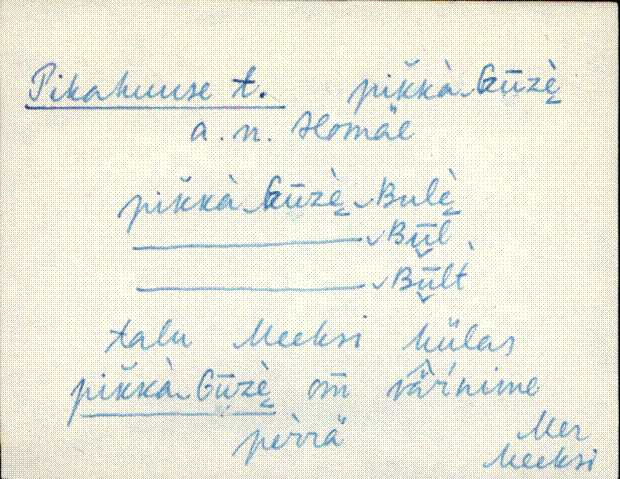 Pikahuuse t. pìkkà Gūzè̬
a. n. Homäe
pìkkà Gūzè̬ Bulè̬
Būl
Būlt
talu Meeksi külas
pìkkà Gūzè̬ om̄ värinime
perrä
Mer
Meeksi